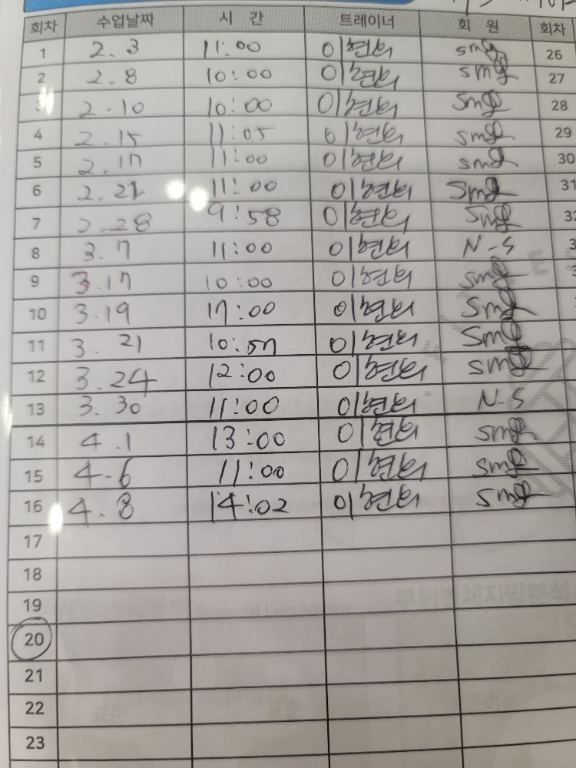 회차 수업날짜 시 간 트레이너 회 원 회차
1 2.3 11:00 이현희 smg 26
2 2.8 10:00 이현희 smg 27
3 2.10 10:00 이현희 smg 28
4 2.15 11:05 이현희 smg 29
5 2.17 11:00 이현희 smg 30
6 2.21 11:00 이현희 smg 31
7 2.28 9:58 이현희 smg
8 3.7 11:00 이현희 N-S
9 3.17 10:00 이현희 smg
10 3.19 17:00 이현희 smg
11 3.21 10:57 이현희 smg
12 3.24 12:00 이현희 smg
13 3.30 11:00 이현희 N-S
14 4.1 13:00 이현희 smg
15 4.6 11:00 이현희 smg
16 4.8 14:02 이현희 smg
17
18
19
20
21
22
23